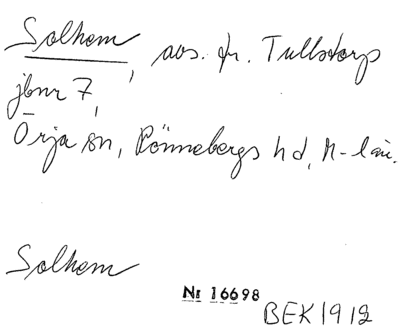 Solhem, avs. fr. Tullstorp
jbnr 7,
Örja sn, Rönnebergs hd, M-län.
Solhem
Nr 16698
BEK 1912